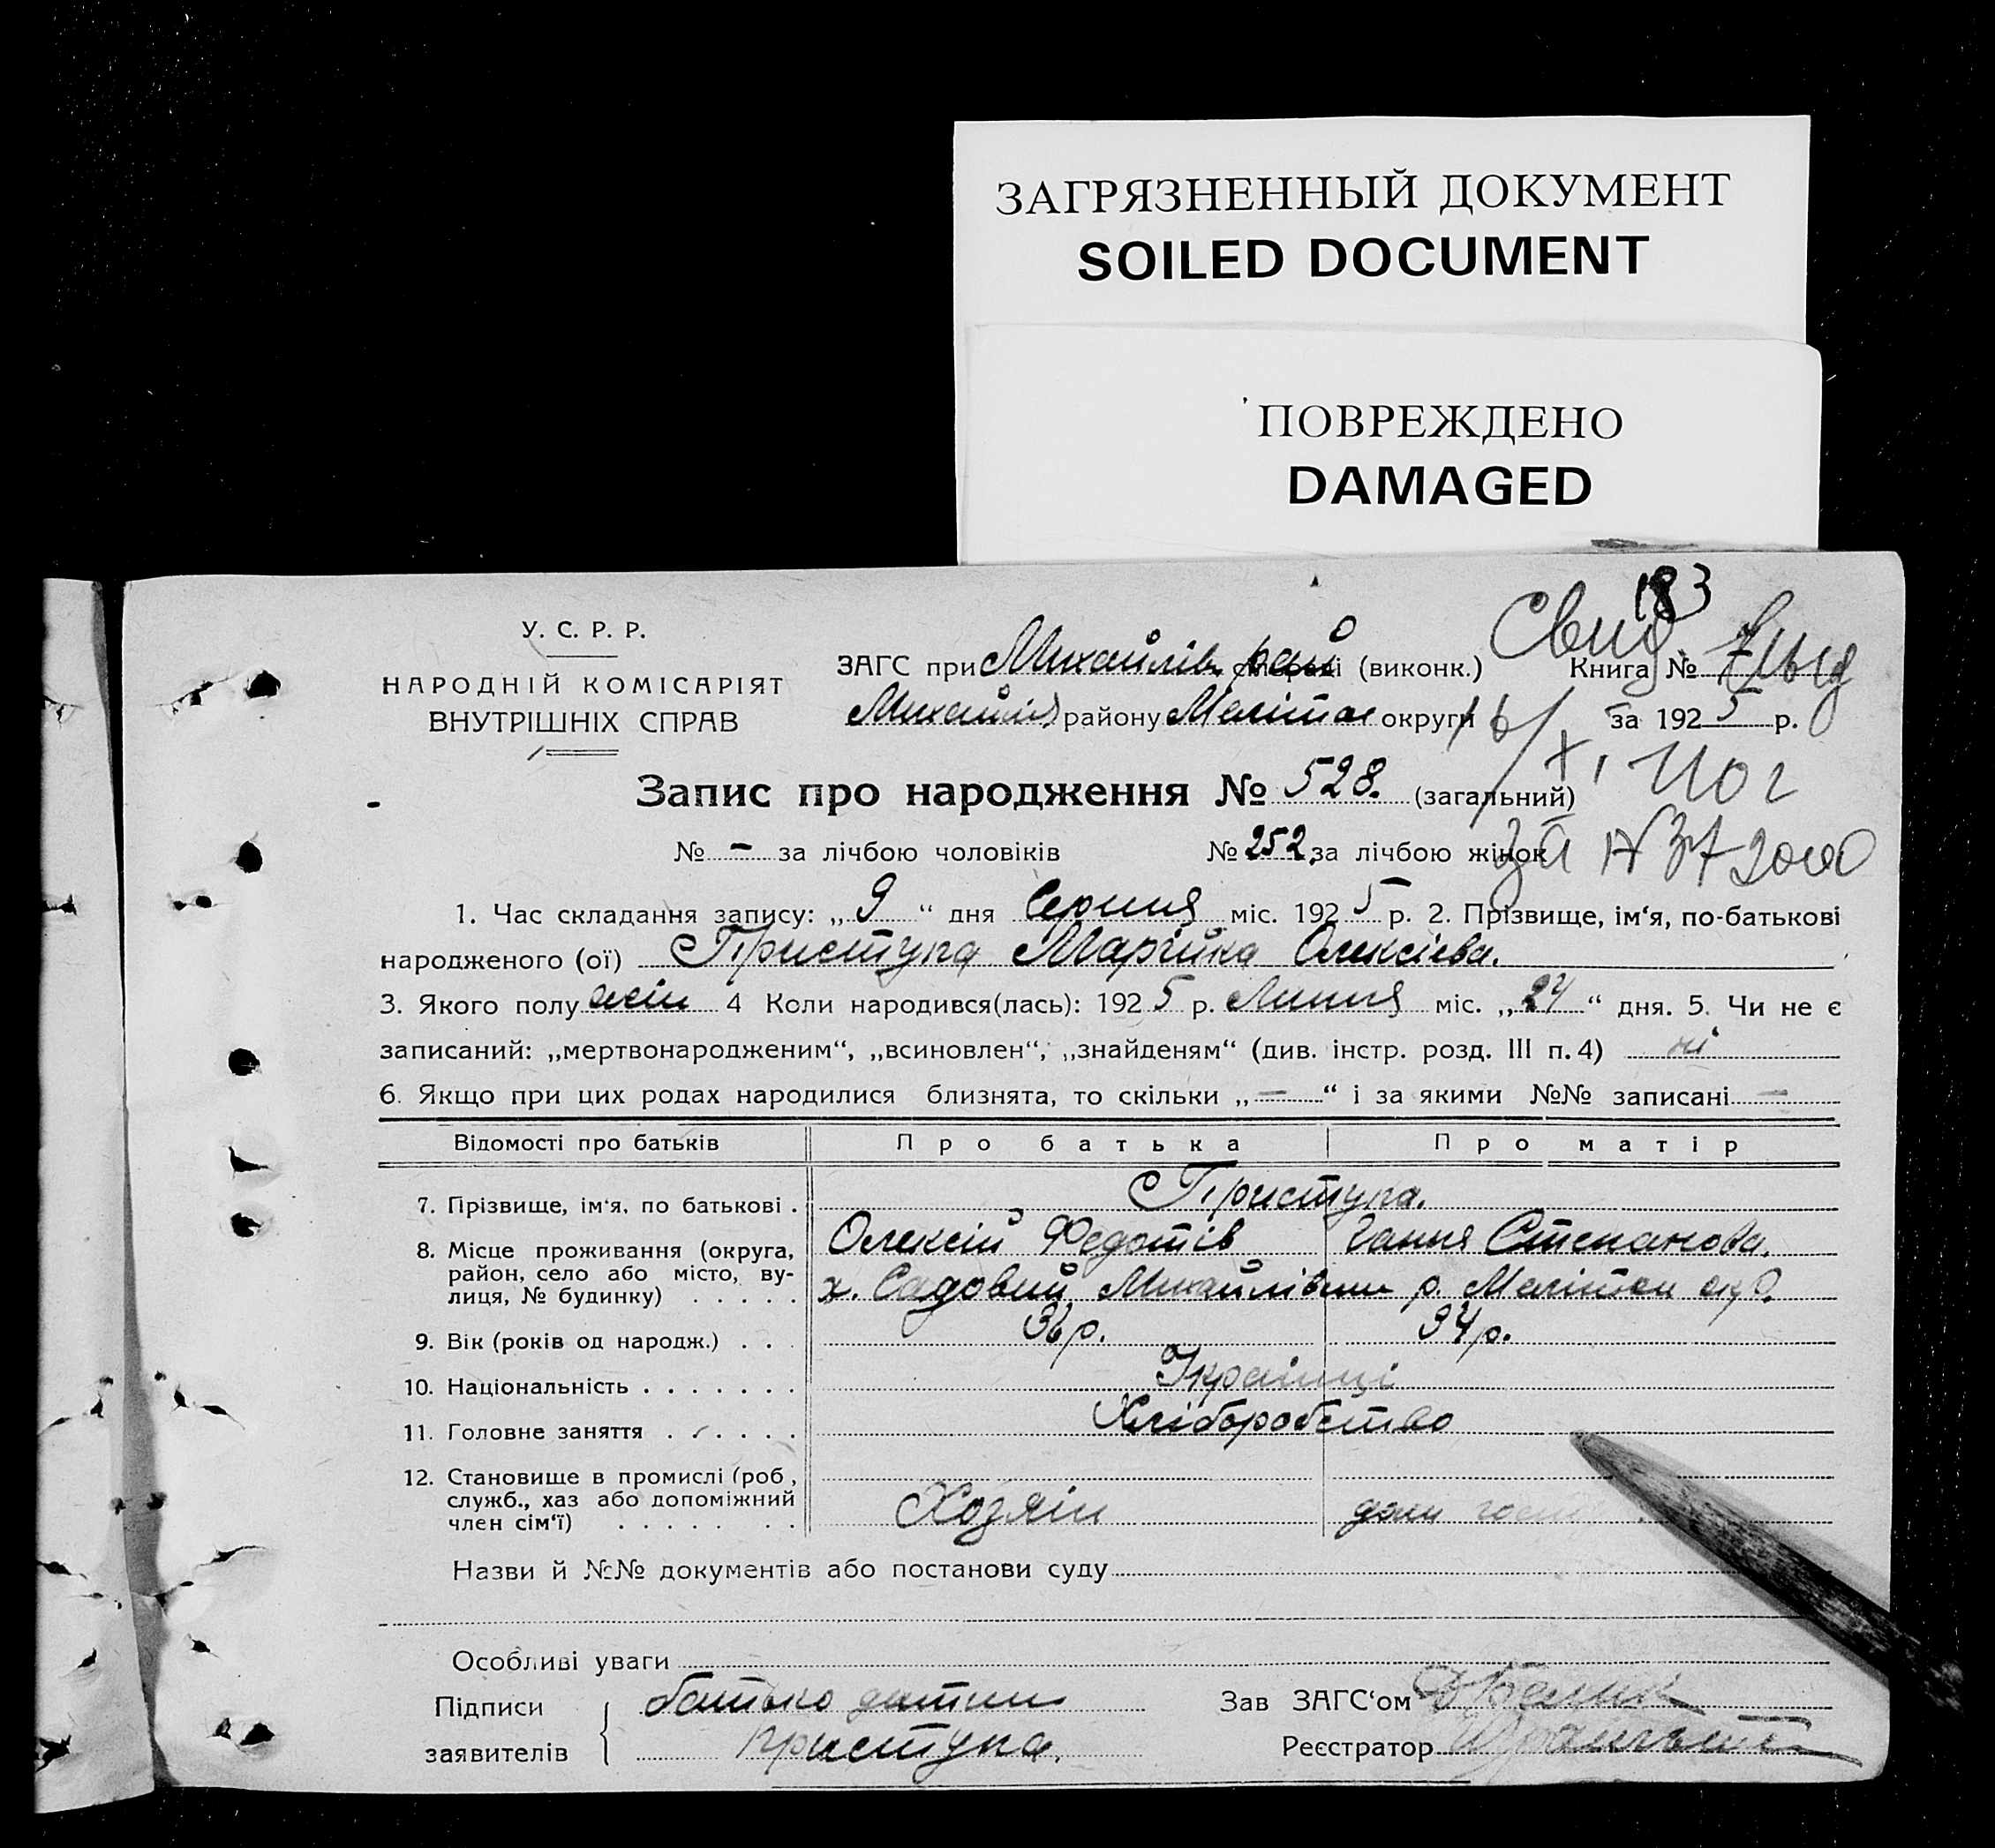 ЗАГРЯЗНЕННЫЙ ДОКУМЕНТ
SOILED DOCUMENT
ПОВРЕЖДЕНО
DAMAGED
183
У. С. Р. Р.
НАРОДНІЙ КОМІСАРІЯТ
ВНУТРІШНІХ СПРАВ
ЗАГС при Михайлів. рай (виконк.) Книга №
Михайлів району Меліто округи за 1925 р.
Свид.
Запис про народження № 528. (загальний)
№ - за лічбою чоловіків № 252 за лічбою жінок
1. Час складання запису: „ 9 “ дня Серпня міс. 1925 р. 2. Прізвище, ім‘я, по-батькові
народженого (ої) Приступа Марійка Олексієва.
3. Якого полу жін 4 Коли народився(лась): 1925 р. Липня міс. „ 24 “ дня. 5. Чи не є
записаний: „мертвонародженим“, „всиновлен“, „знайденям“ (див. інстр. розд. III п. 4) ні
6. Якщо при цих родах народилися близнята, то скільки „ — “ і за якими №№ записані —
Відомості про батьків Про батька Про матір
7. Прізвище, ім‘я, по батькові . Приступа.
Олексій Федотів Гання Степанова.
8. Місце проживання (округа,
район, село або місто, ву-
лиця, № будинку) . . . . . х. Садовий Михайлівськ р. Мелітоп окр.
9. Вік (років од народж.) . . . 36 р. 34 р.
10. Національність . . . . . . . Українці
11. Головне заняття . . . . . . Хліборобство
12. Становище в промислі (роб.,
служб., хаз або допоміжний
член сім‘ї) . . . . . . . Хозяїн дом
Назви й №№ документів або постанови суду
Особливі уваги
Підписи
заявителів
батько дитини
Приступа.
Зав ЗАГС‘ом
Реєстратор